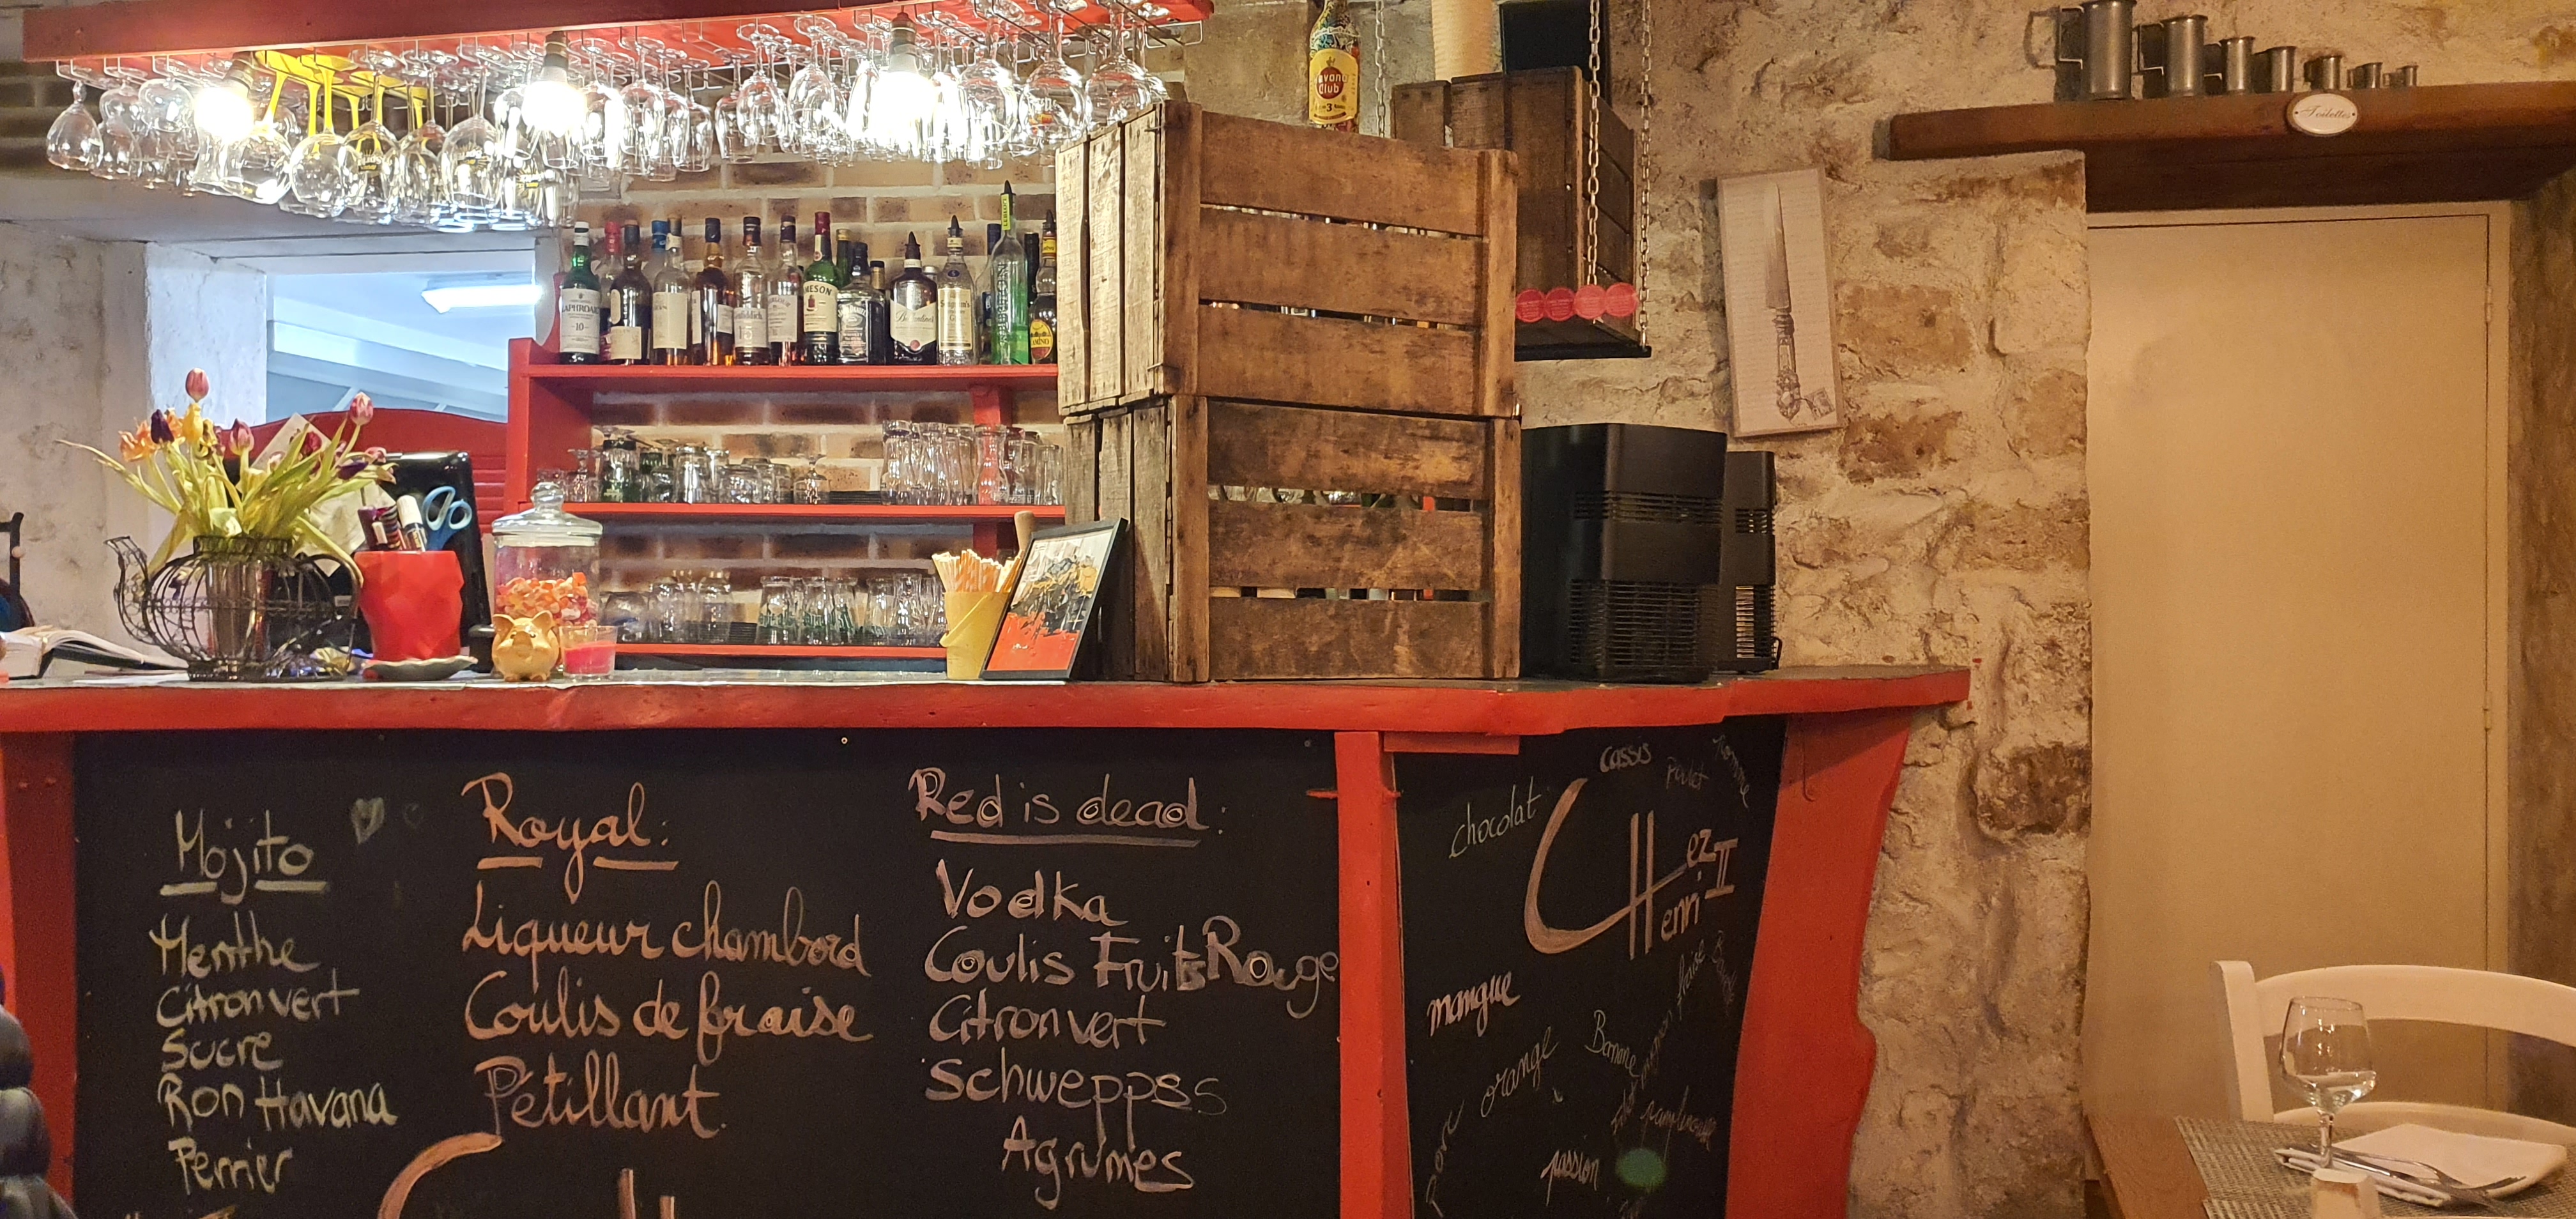 Havana
Club
3
Toilettes
LAPHROAIG
10
JAMESON
Mojito
Menthe
Citron vert
Sucre
Ron Havana
Perrier
Royal:
Liqueur chambord
Coulis de fraise
Pétillant
Red is dead:
Vodka
Coulis Fruits Rouge
Citron vert
Schweppss
Agrumes
cassis
Poulet
Pomme
chocolat
CHez
Henri II
mangue
fraise
orange
Banane
Filet mignon
porc
pamplemousse
passion